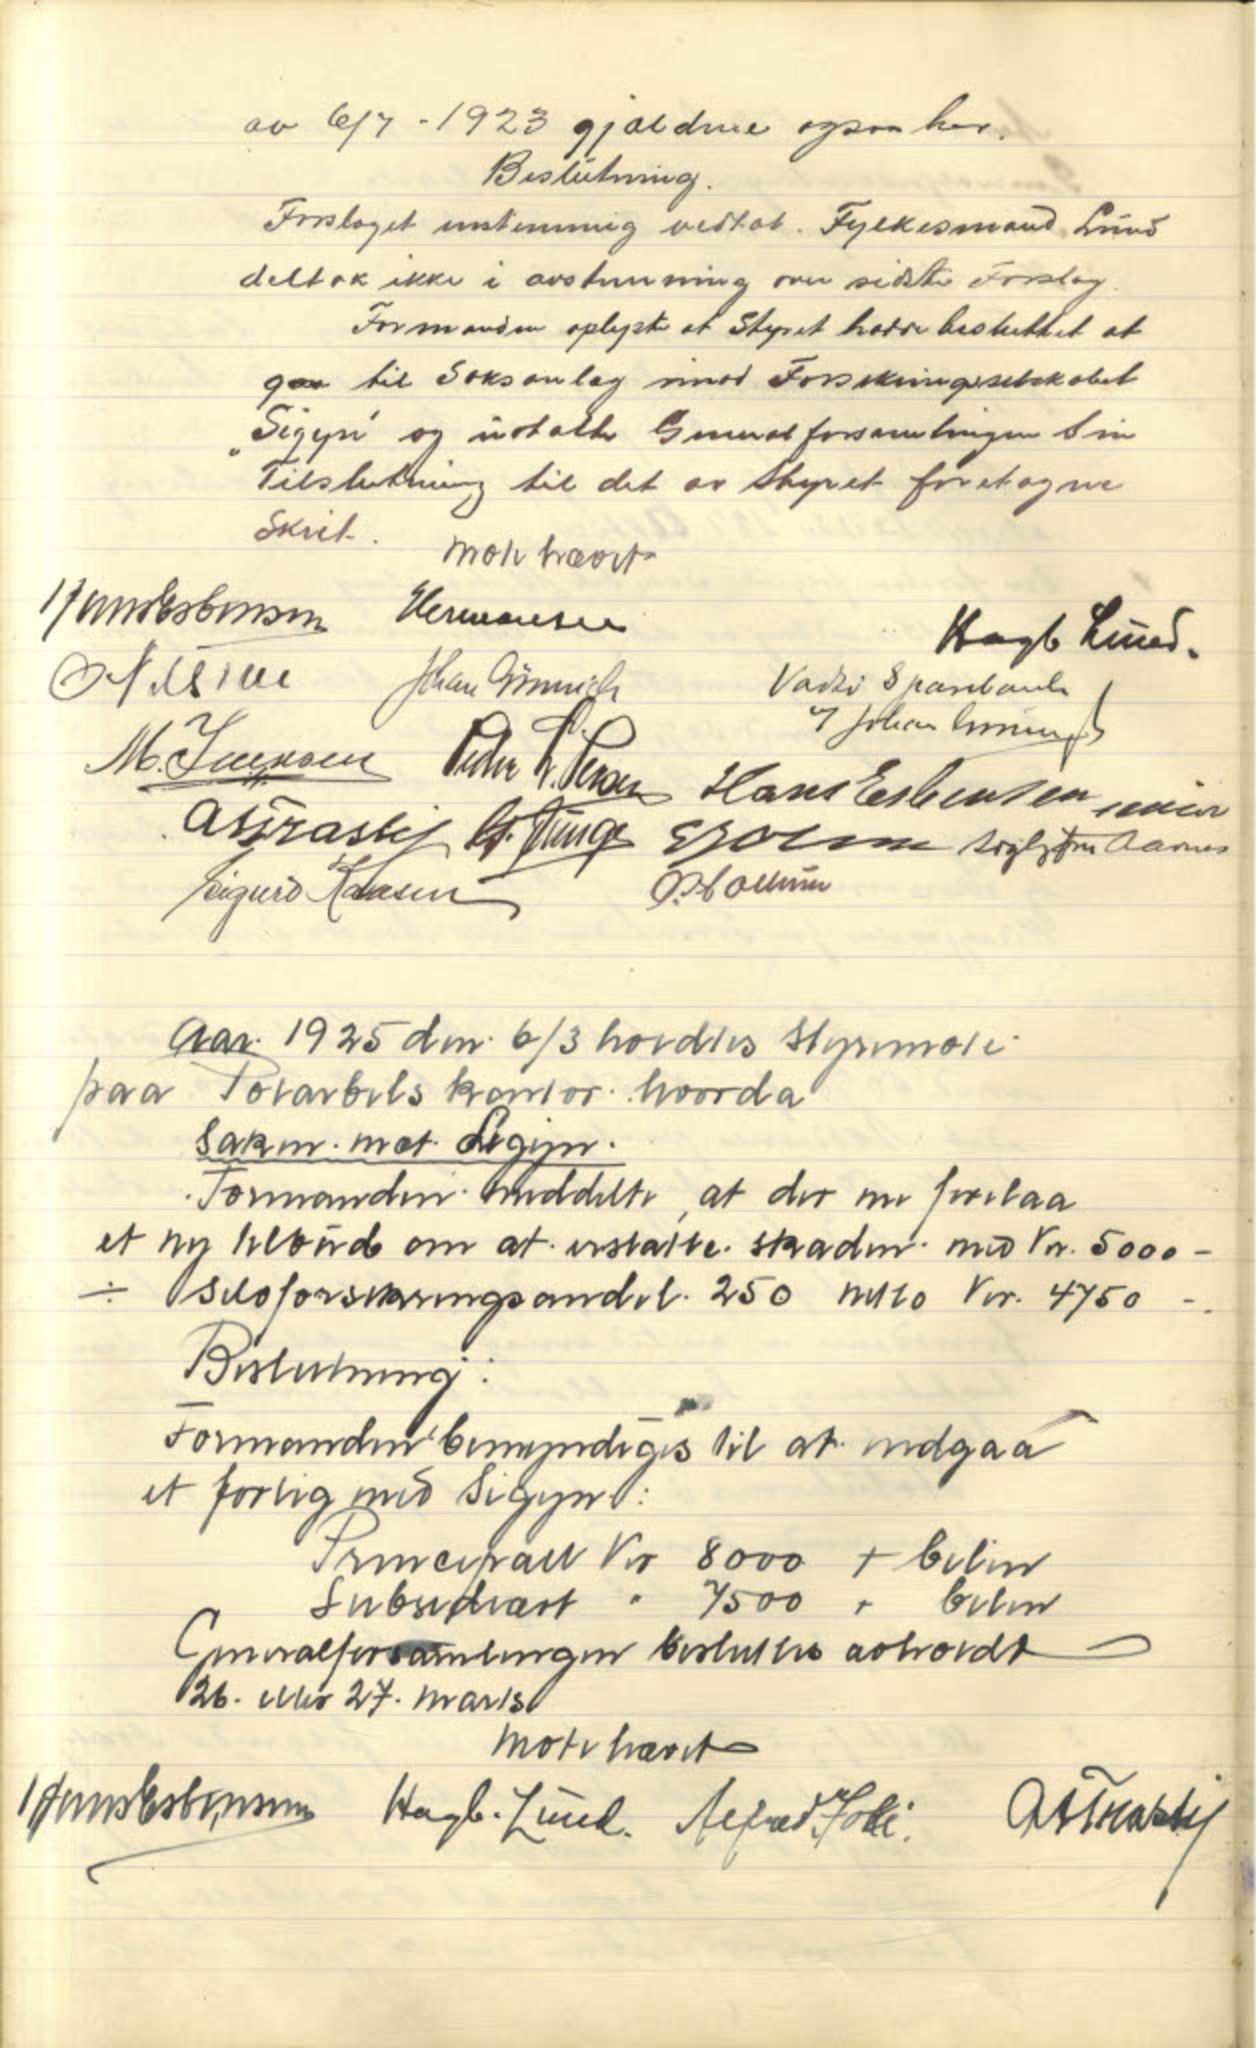 av 6/7 - 1923 gjældrne ogsaa her.
Beslutning.
Forslaget enstemmig vedtat. Fylkesmand Lund
deltok ikke i avstemning over sidste Forslag.
Formanden oplyste at Styret hadde besluttet at
gaa til Søksanlæg imod Forsikringsselskabet
"Sigyn" og uttalte Generalforsamlingen sin
Tilslutning til det av Styret foretagne
Skrit.
Møte hævet
Hans Esbensen Hermansen Hagb Lund.
Johan Grønvich Vadsø Sparebank
M. Iversen
Hans Esbensen
Sigurd Hansen
Aar. 1925 den. 6/3 holdtes styremøte
paa Polarbels kontor. hvorda
Saken. mot. Sigyn.
Formanden meddelte, at der nu forelaa
et ny tilbud om at erstatte. skaden. med Kr. 5000 -
÷ Selvforsikringsandel. 250 netto Kr. 4750 -.
Beslutning:
Formanden bemyndiges til at indgaa
et forlig med Sigyn:
Principalt Kr 8000 +
Subsidiært " 7500 "
Generalforsamlingen besluttes avholdt
26. eller 27. marts
Møte hævet
Hans Esbensen Hagb. Lund. Alfred